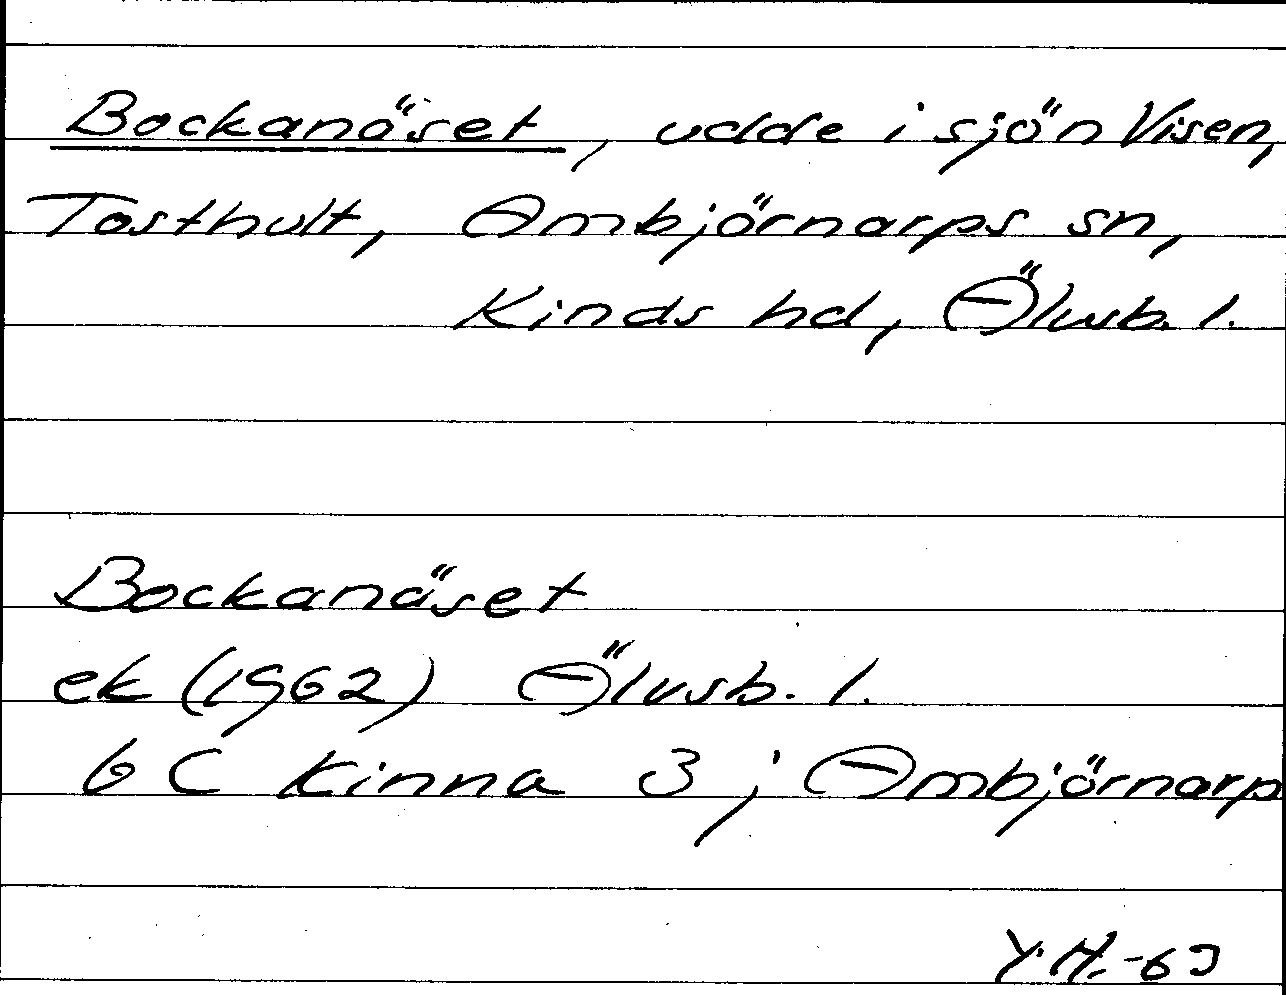 Bockanäset, udde i sjön Visen,
Tosthult, Ambjörnarps sn,
Kinds hd, Älvsb. l.
Bockanäset
ek (1962) Älvsb. l.
6 C Kinna 3 j Ambjörnarp
Y.H.-63